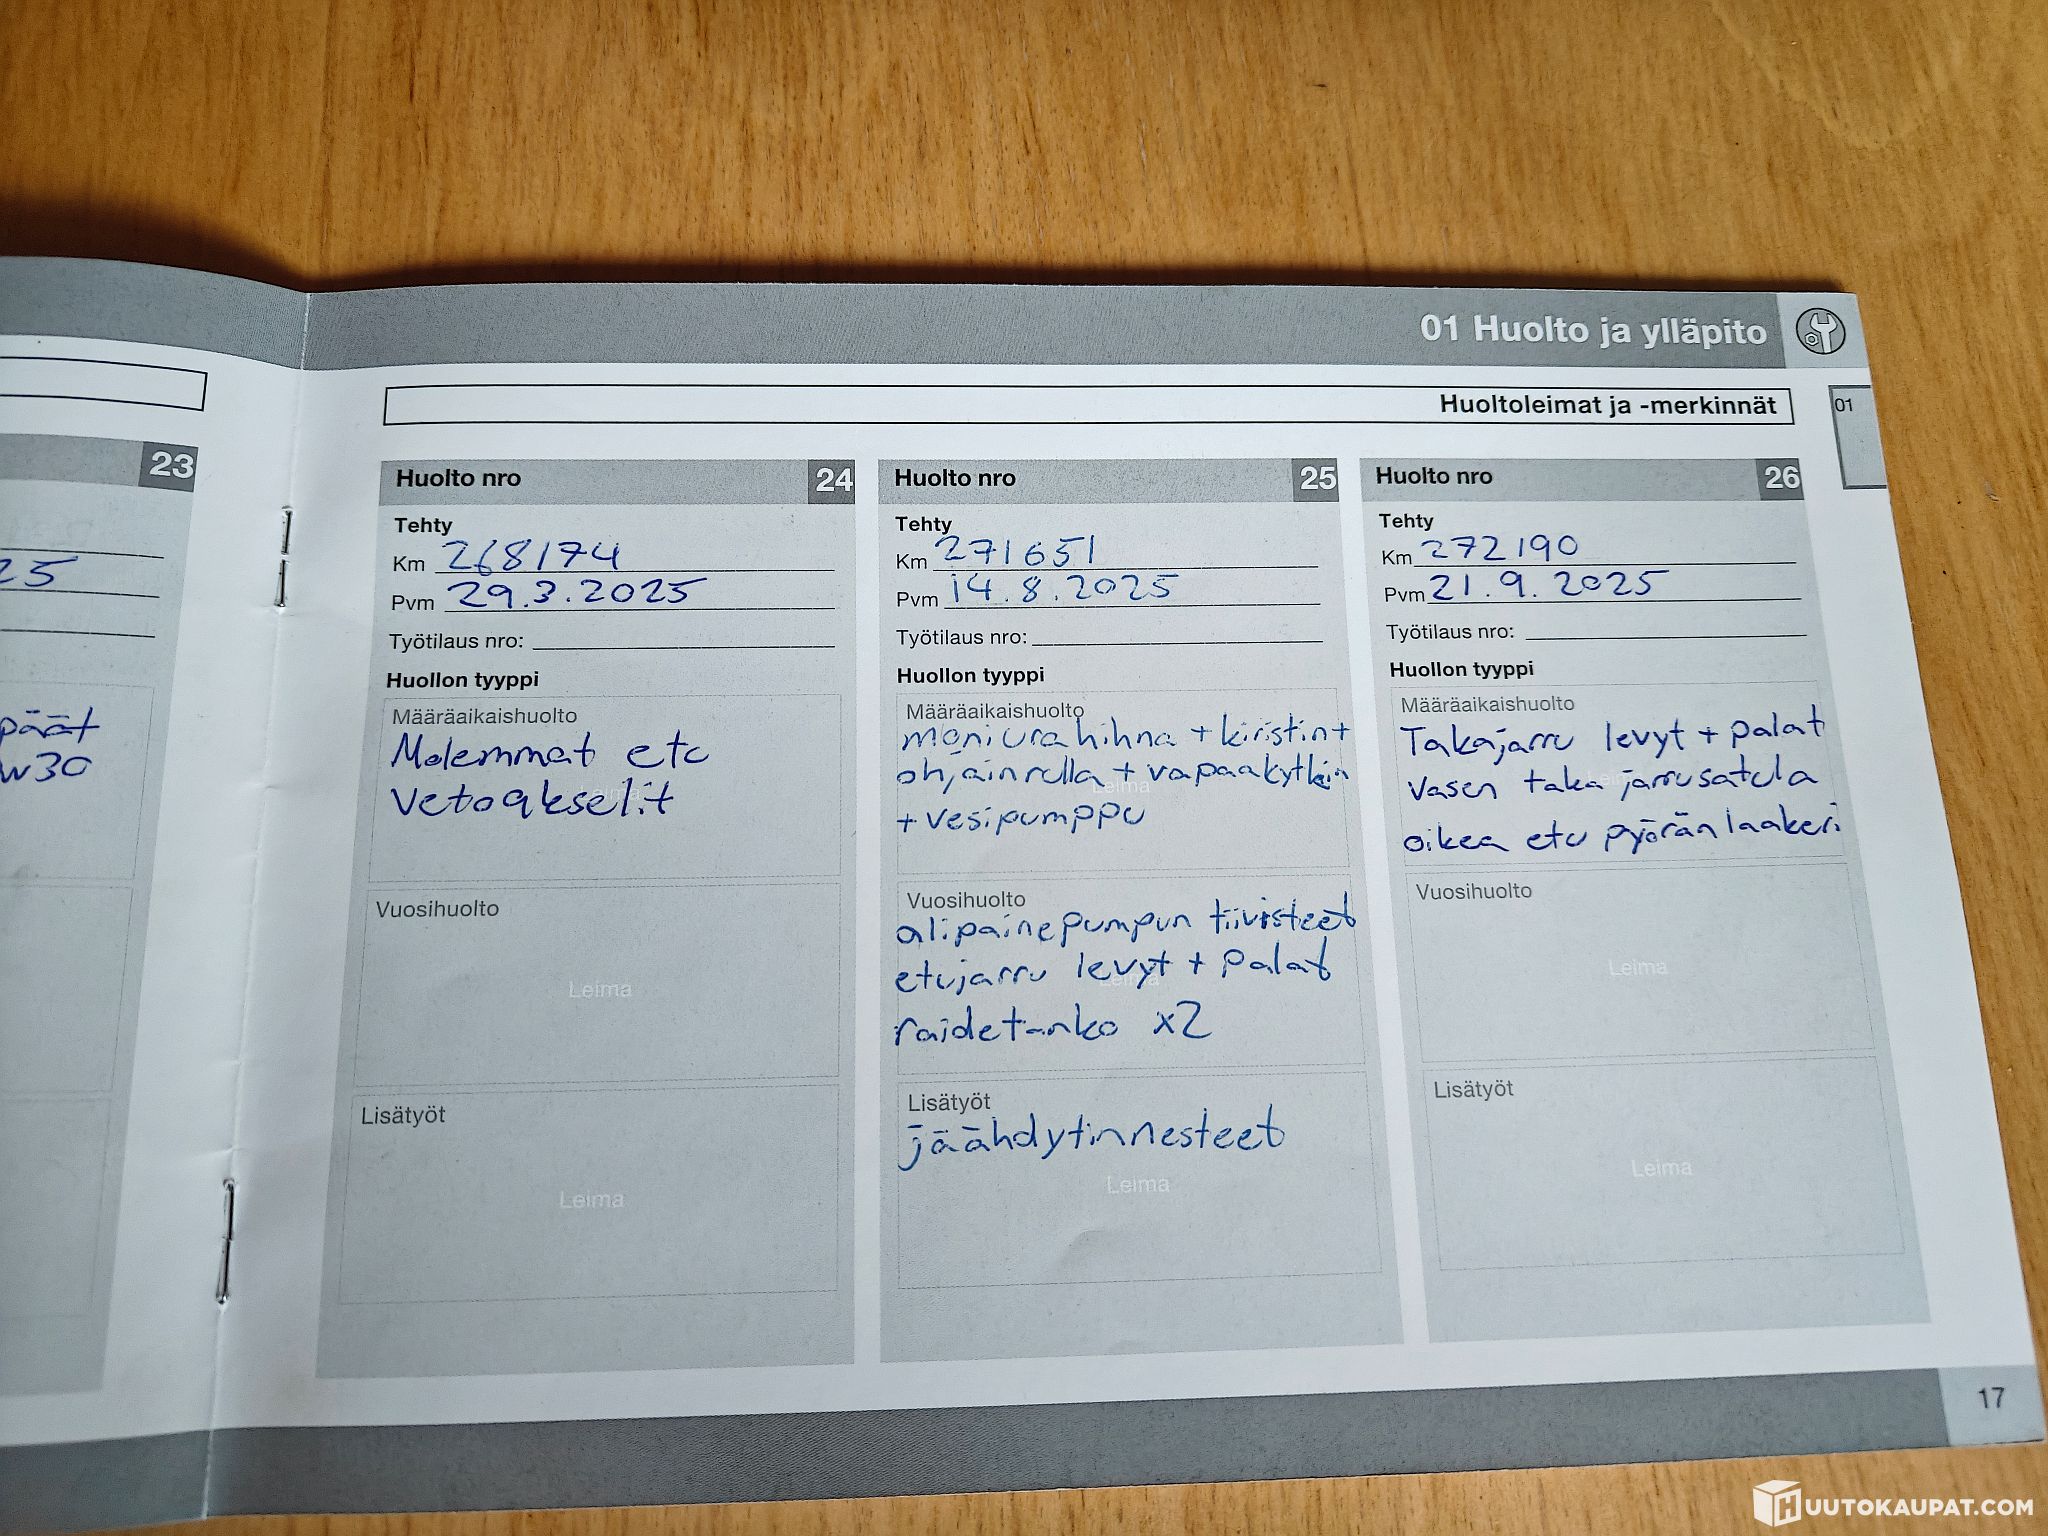 23
25
päät
w30
01 Huolto ja ylläpito
Huoltoleimat ja -merkinnät
01
Huolto nro 24
Tehty
Km 268174
Pvm 29.3.2025
Työtilaus nro:
Huollon tyyppi
Määräaikaishuolto
Molemmat etu
Vetoakselit
Leima
Vuosihuolto
Leima
Lisätyöt
Leima
Huolto nro 25
Tehty
Km 271651
Pvm 14.8.2025
Työtilaus nro:
Huollon tyyppi
Määräaikaishuolto
moniurahihna + kiristin +
ohjainrulla + vapaakytkin
Leima
+ vesipumppu
Vuosihuolto
alipainepumpun tiivisteet
etujarru levyt + palat
Leima
raidetanko x2
Lisätyöt
jäähdytinnesteet
Leima
Huolto nro 26
Tehty
Km 272190
Pvm 21.9.2025
Työtilaus nro:
Huollon tyyppi
Määräaikaishuolto
Takajarru levyt + palat
Vasen taka jarrusatula
Leima
oikea etu pyörän laakeri
Vuosihuolto
Leima
Lisätyöt
Leima
17
HUUTOKAUPAT.COM